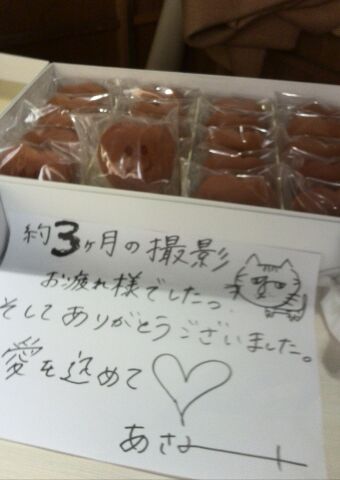 約3ヶ月の撮影
お疲れ様でしたっ
そしてありがとうございました。
愛を込めて
あさみ